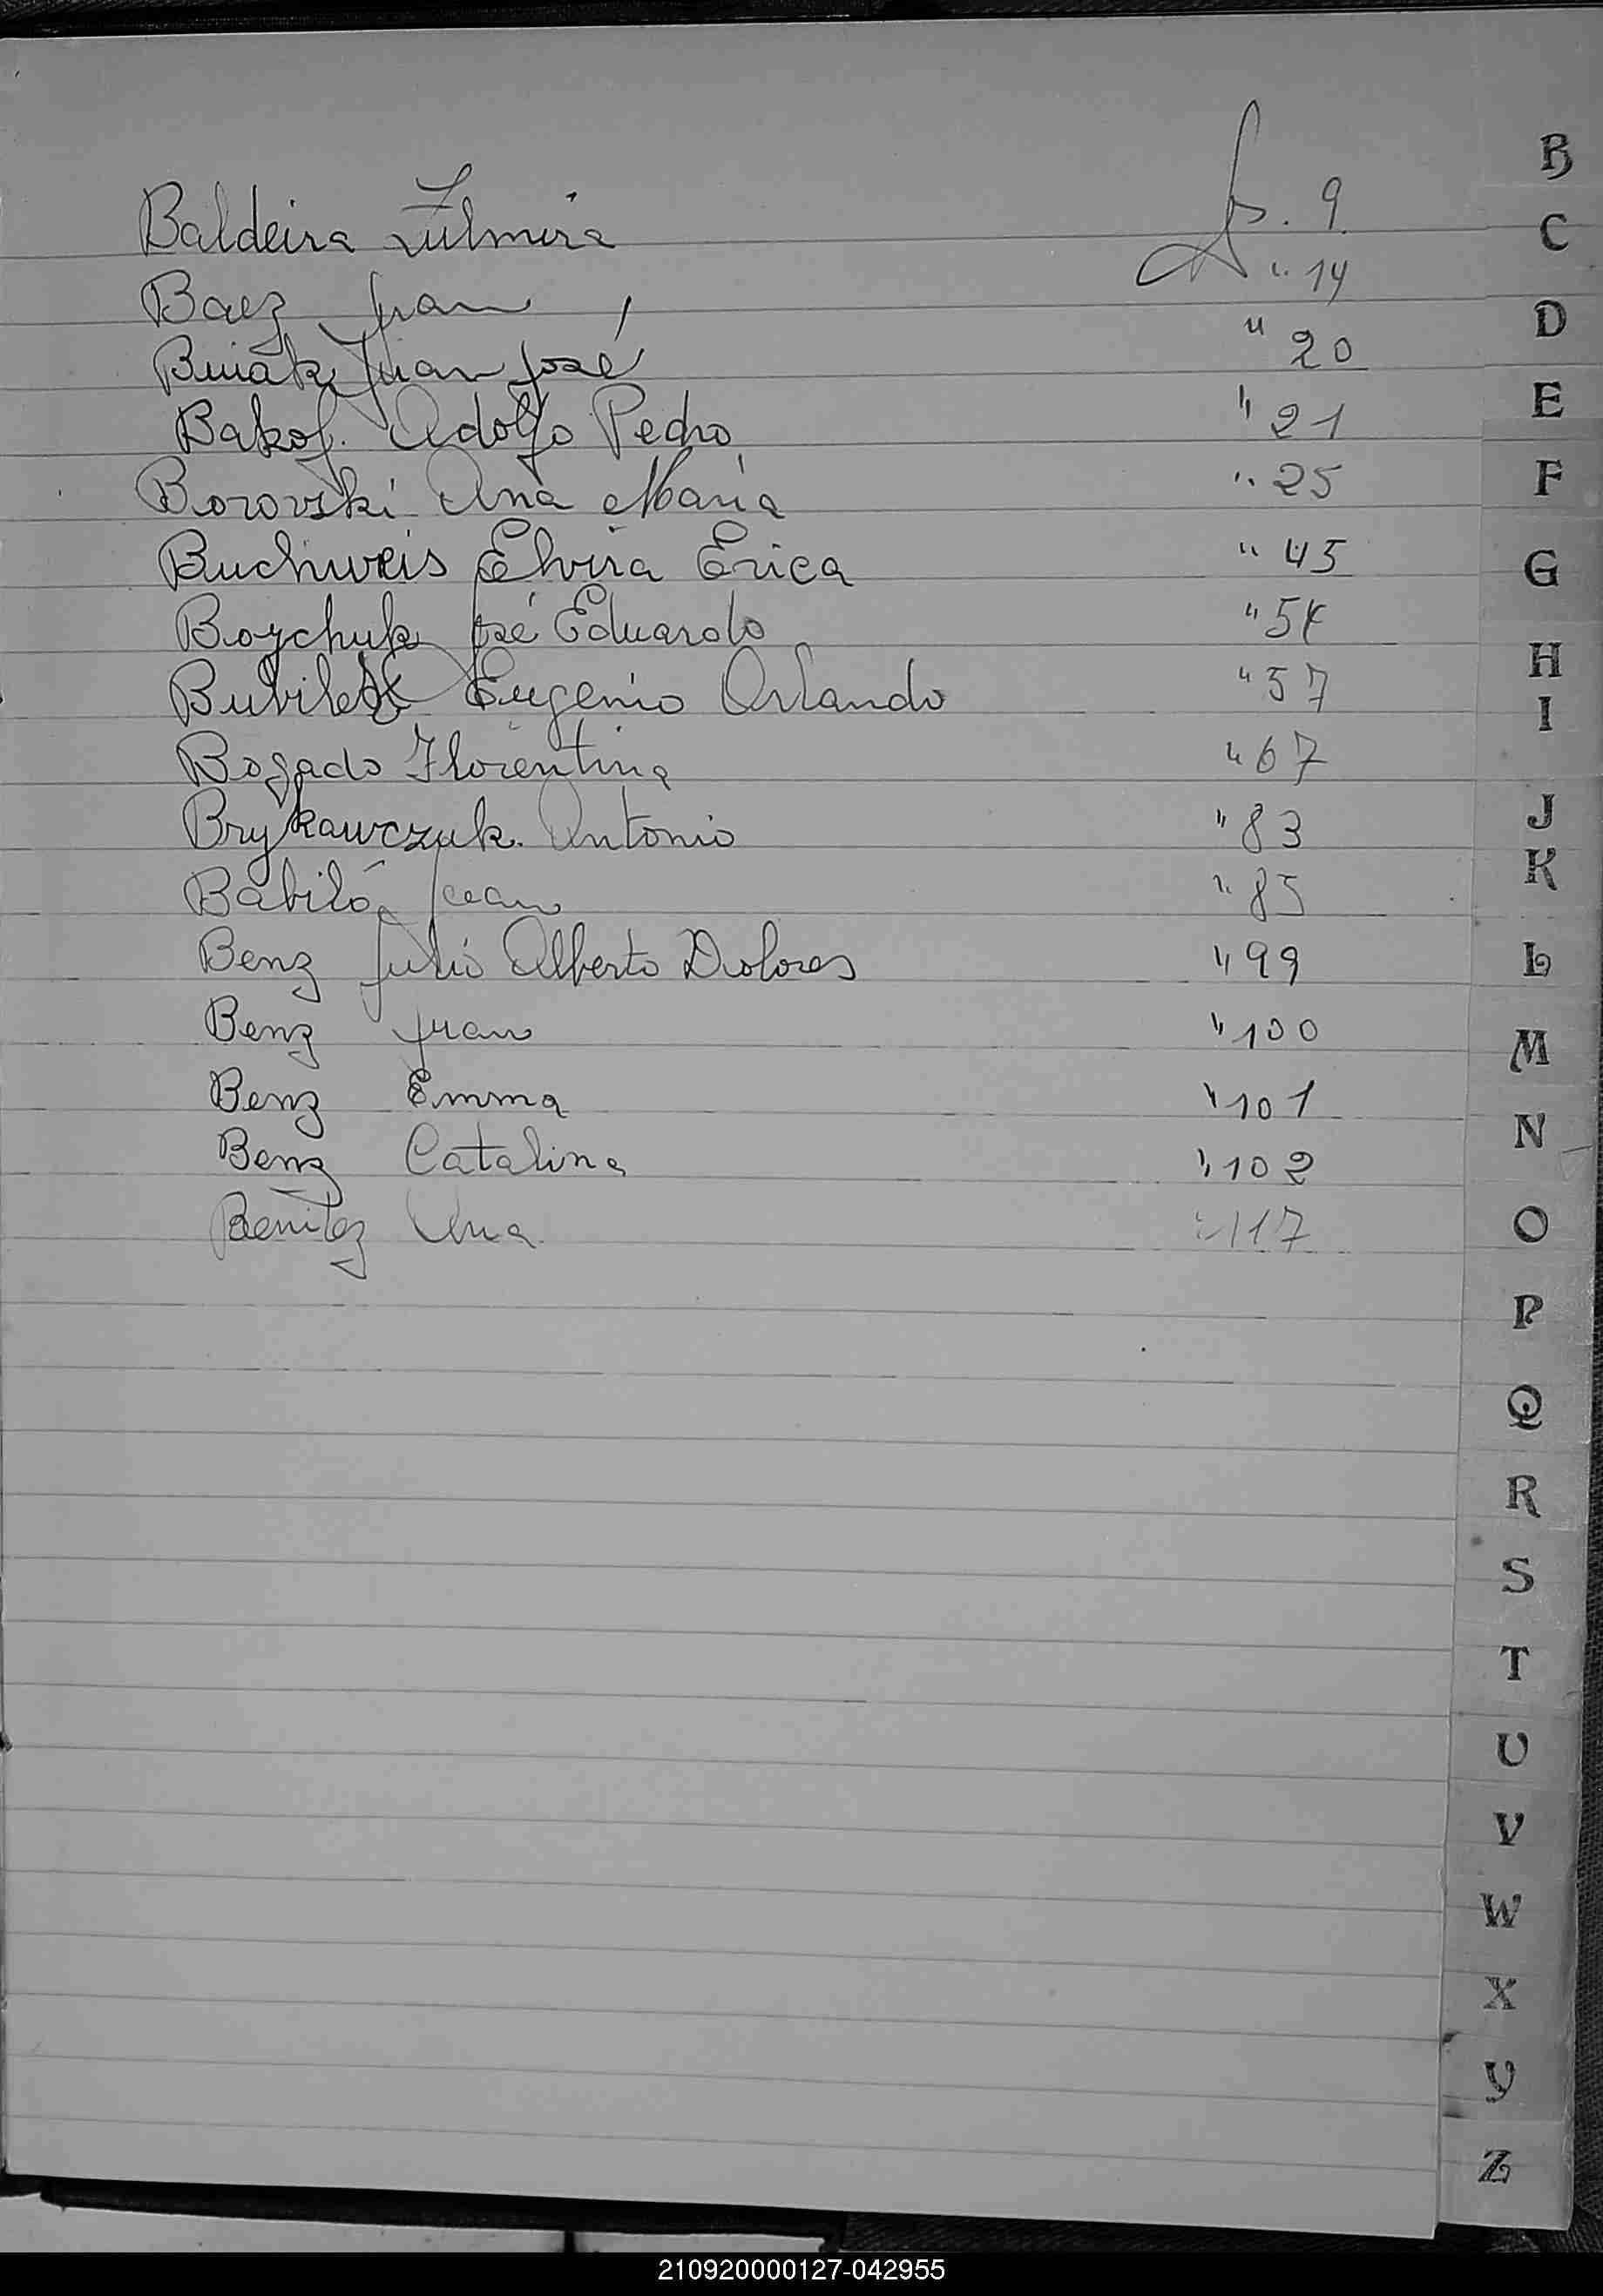 Baldeira Zulmira f. 9
Baez Juan " 14
Bniak Juan José " 20
Bakof. Adolfo Pedro " 21
Borovski Ana María " 25
Buchweis Elvira Erica " 45
Boychuk José Eduardo " 54
Eugenio Orlando " 57
Bogado Florentina " 67
Brykawczuk. Antonio " 83
Babiló Juan " 85
Benz Julio Alberto Dolores " 99
Benz Juan " 100
Benz Emma " 101
Benz Catalina " 102
Benitez Ana " 117
B
C
D
E
F
G
H
I
J
K
L
M
N
O
P
Q
R
S
T
U
V
W
X
Y
Z
210920000127-042955